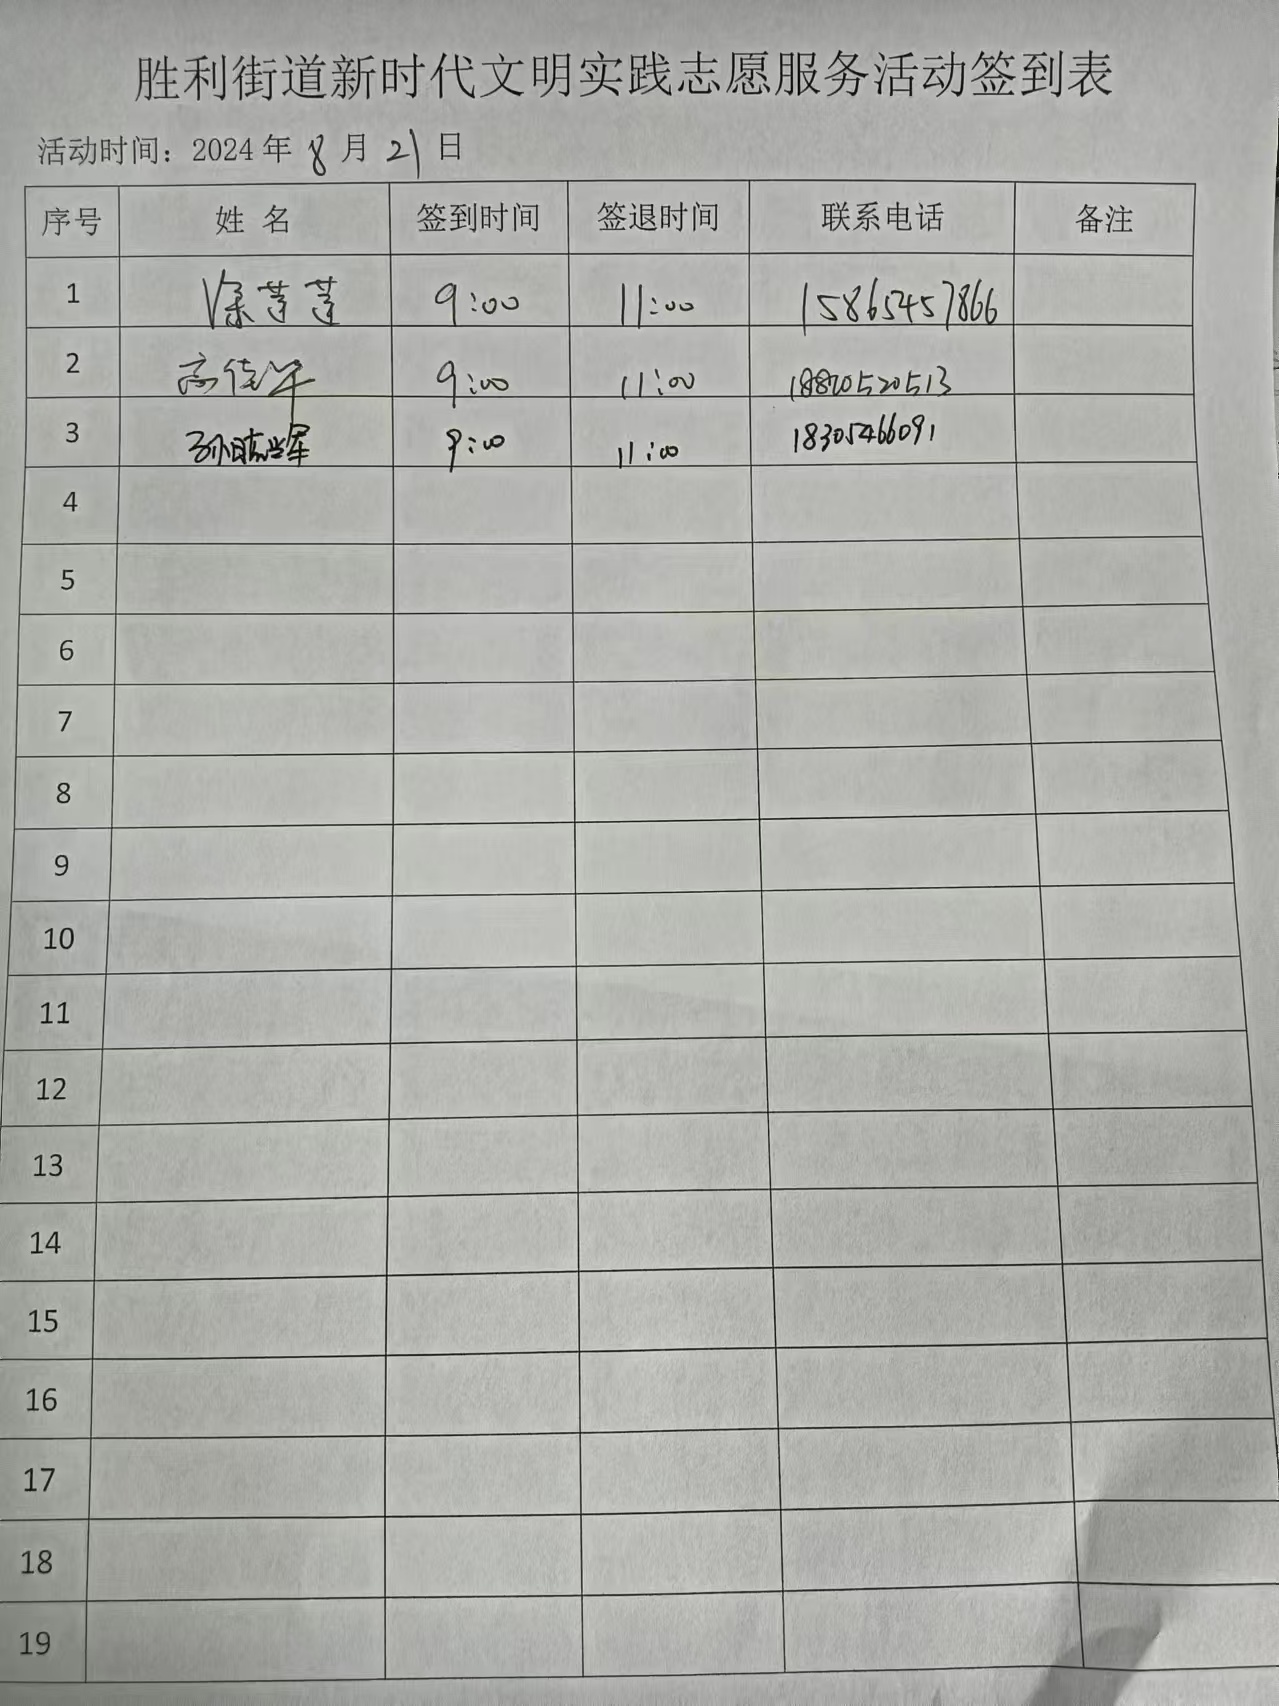 胜利街道新时代文明实践志愿服务活动签到表
活动时间：2024 年 8 月 21 日
序号 姓 名 签到时间 签退时间 联系电话 备注
1 徐莲莲 9:00 11:00 15865457866
2 高佳华 9:00 11:00 18820520513
3 9:00 11:00 18305466091
4
5
6
7
8
9
10
11
12
13
14
15
16
17
18
19